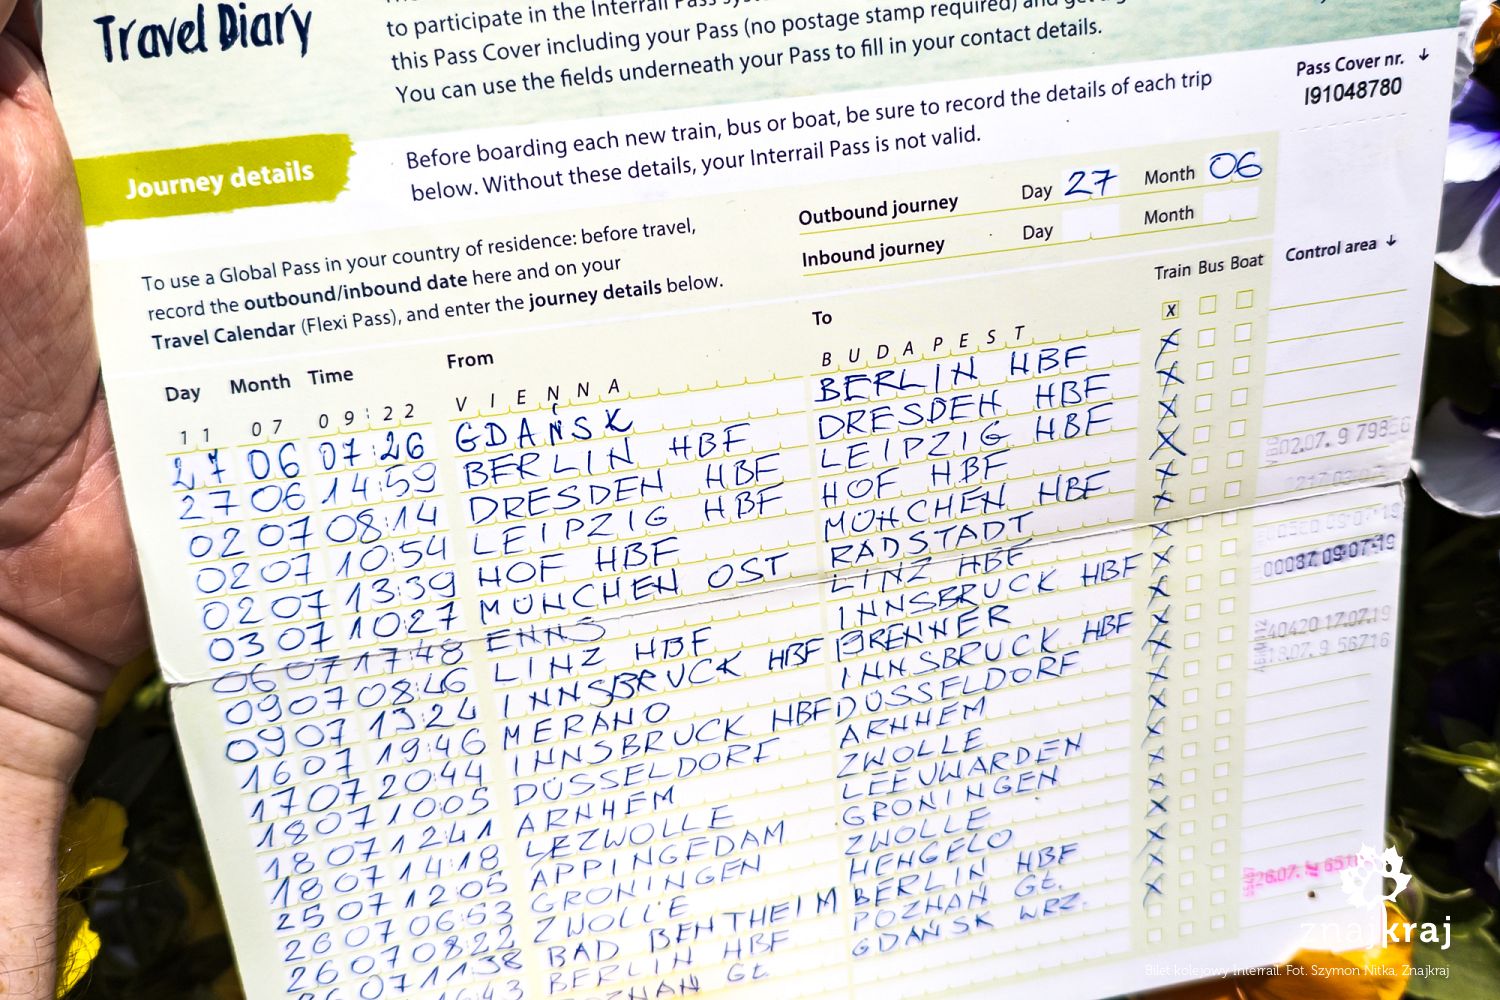 Travel Diary
to participate in the Interrail Pass
this Pass Cover including your Pass (no postage stamp required) and
You can use the fields underneath your Pass to fill in your contact details.
Pass Cover nr. ↓
I91048780
Journey details
Before boarding each new train, bus or boat, be sure to record the details of each trip
below. Without these details, your Interrail Pass is not valid.
To use a Global Pass in your country of residence: before travel,
record the outbound/inbound date here and on your
Travel Calendar (Flexi Pass), and enter the journey details below.
Outbound journey Day 27 Month 06
Inbound journey Day Month
Control area ↓
Day Month Time From To Train Bus Boat
11 07 09:22 VIENNA BUDAPEST X
27 06 07:26 GDAŃSK BERLIN HBF X
27 06 14:59 BERLIN HBF DRESDEN HBF X
02 07 08:14 DRESDEN HBF LEIPZIG HBF X
02 07 10:54 LEIPZIG HBF HOF HBF X
02 07 13:39 HOF HBF MÜNCHEN HBF X
03 07 10:27 MÜNCHEN OST RADSTADT X
06 07 17:48 ENNS LINZ HBF X
09 07 08:46 LINZ HBF INNSBRUCK HBF X
09 07 13:24 INNSBRUCK HBF BRENNER X
16 07 19:46 MERANO INNSBRUCK HBF X
17 07 20:44 INNSBRUCK HBF DÜSSELDORF X
18 07 10:05 DÜSSELDORF ARNHEM X
18 07 12:41 ARNHEM ZWOLLE X
18 07 14:18 ZWOLLE LEEUWARDEN X
25 07 12:05 APPINGEDAM GRONINGEN X
26 07 06:53 GRONINGEN ZWOLLE X
26 07 08:22 ZWOLLE HENGELO X
26 07 11:38 BAD BENTHEIM BERLIN HBF X
BERLIN HBF POZNAŃ GŁ. X
GŁ. GDAŃSK WRZ.
02.07. 9
00037 09-07-19
40420 17.07.19
18.07. 9 56716
26.07.
znajkraj
Bilet kolejowy Interrail. Fot. Szymon Nitka, Znajkraj